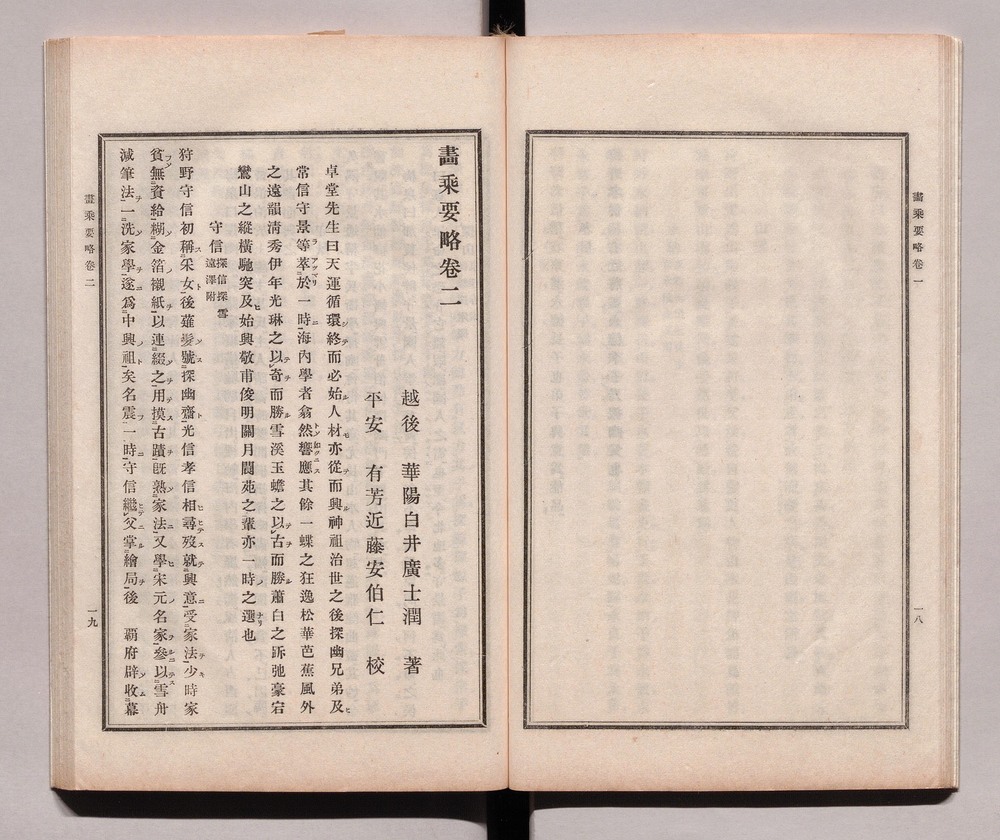 畫乘要略卷一
一八
畫乘要略卷二
越後　華陽白井廣士潤　著
平安　有芳近藤安伯仁　校
卓堂先生曰天運循環終而必始人材亦從而興神祖治世之後探幽兄弟及
常信守景等萃於一時海內學者翕然響應其餘一蝶之狂逸松華芭蕉風外
之遠韻淸秀伊年光琳之以奇而勝雪溪玉蟾之以古而勝蕭白之跅弛豪宕
鸞山之縱橫馳突及始興敬甫俊明關月閬苑之輩亦一時之選也
守信探信探雪遠澤附
狩野守信初稱采女後薙髮號探幽齋光信孝信相尋歿就興意受家法少時家
貧無資給糊金箔襯紙以連綴之用摸古蹟旣熟家法又學宋元名家參以雪舟
減筆法一洗家學遂爲中興祖矣名震一時守信繼父掌繪局後　覇府辟收幕
畫乘要略卷二
一九